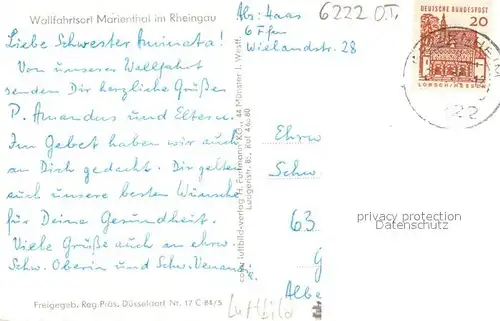 Wallfahrtsort Marienthal im Rheingau
Liebe Schwester Aminata!
Von unseres Wallfahrt
senden Dir herzliche Grüße
P. Amandus und Eltern.
Im Gebet haben wir auch
an Dich gedacht. Dir gelten
auch unsere besten Wünsche
für Deine Gesundheit.
Viele Grüße auch an ehrw.
Schw. Oberin und Schw. Venantia.
Freigegeb. Reg. Präs. Düsseldorf Nr. 17 C 84/5
Luftbild
Abs: Haas
6 Ffm
Wielandstr. 28
6222 O.T.
DEUTSCHE BUNDESPOST
20
LORSCH/HESSEN
622
Ehrw
Schw.
63
G
Albe
privacy protection
Datenschutz
luftbild-verlag H.
44 Münster i. Westf.
Ruf 46080